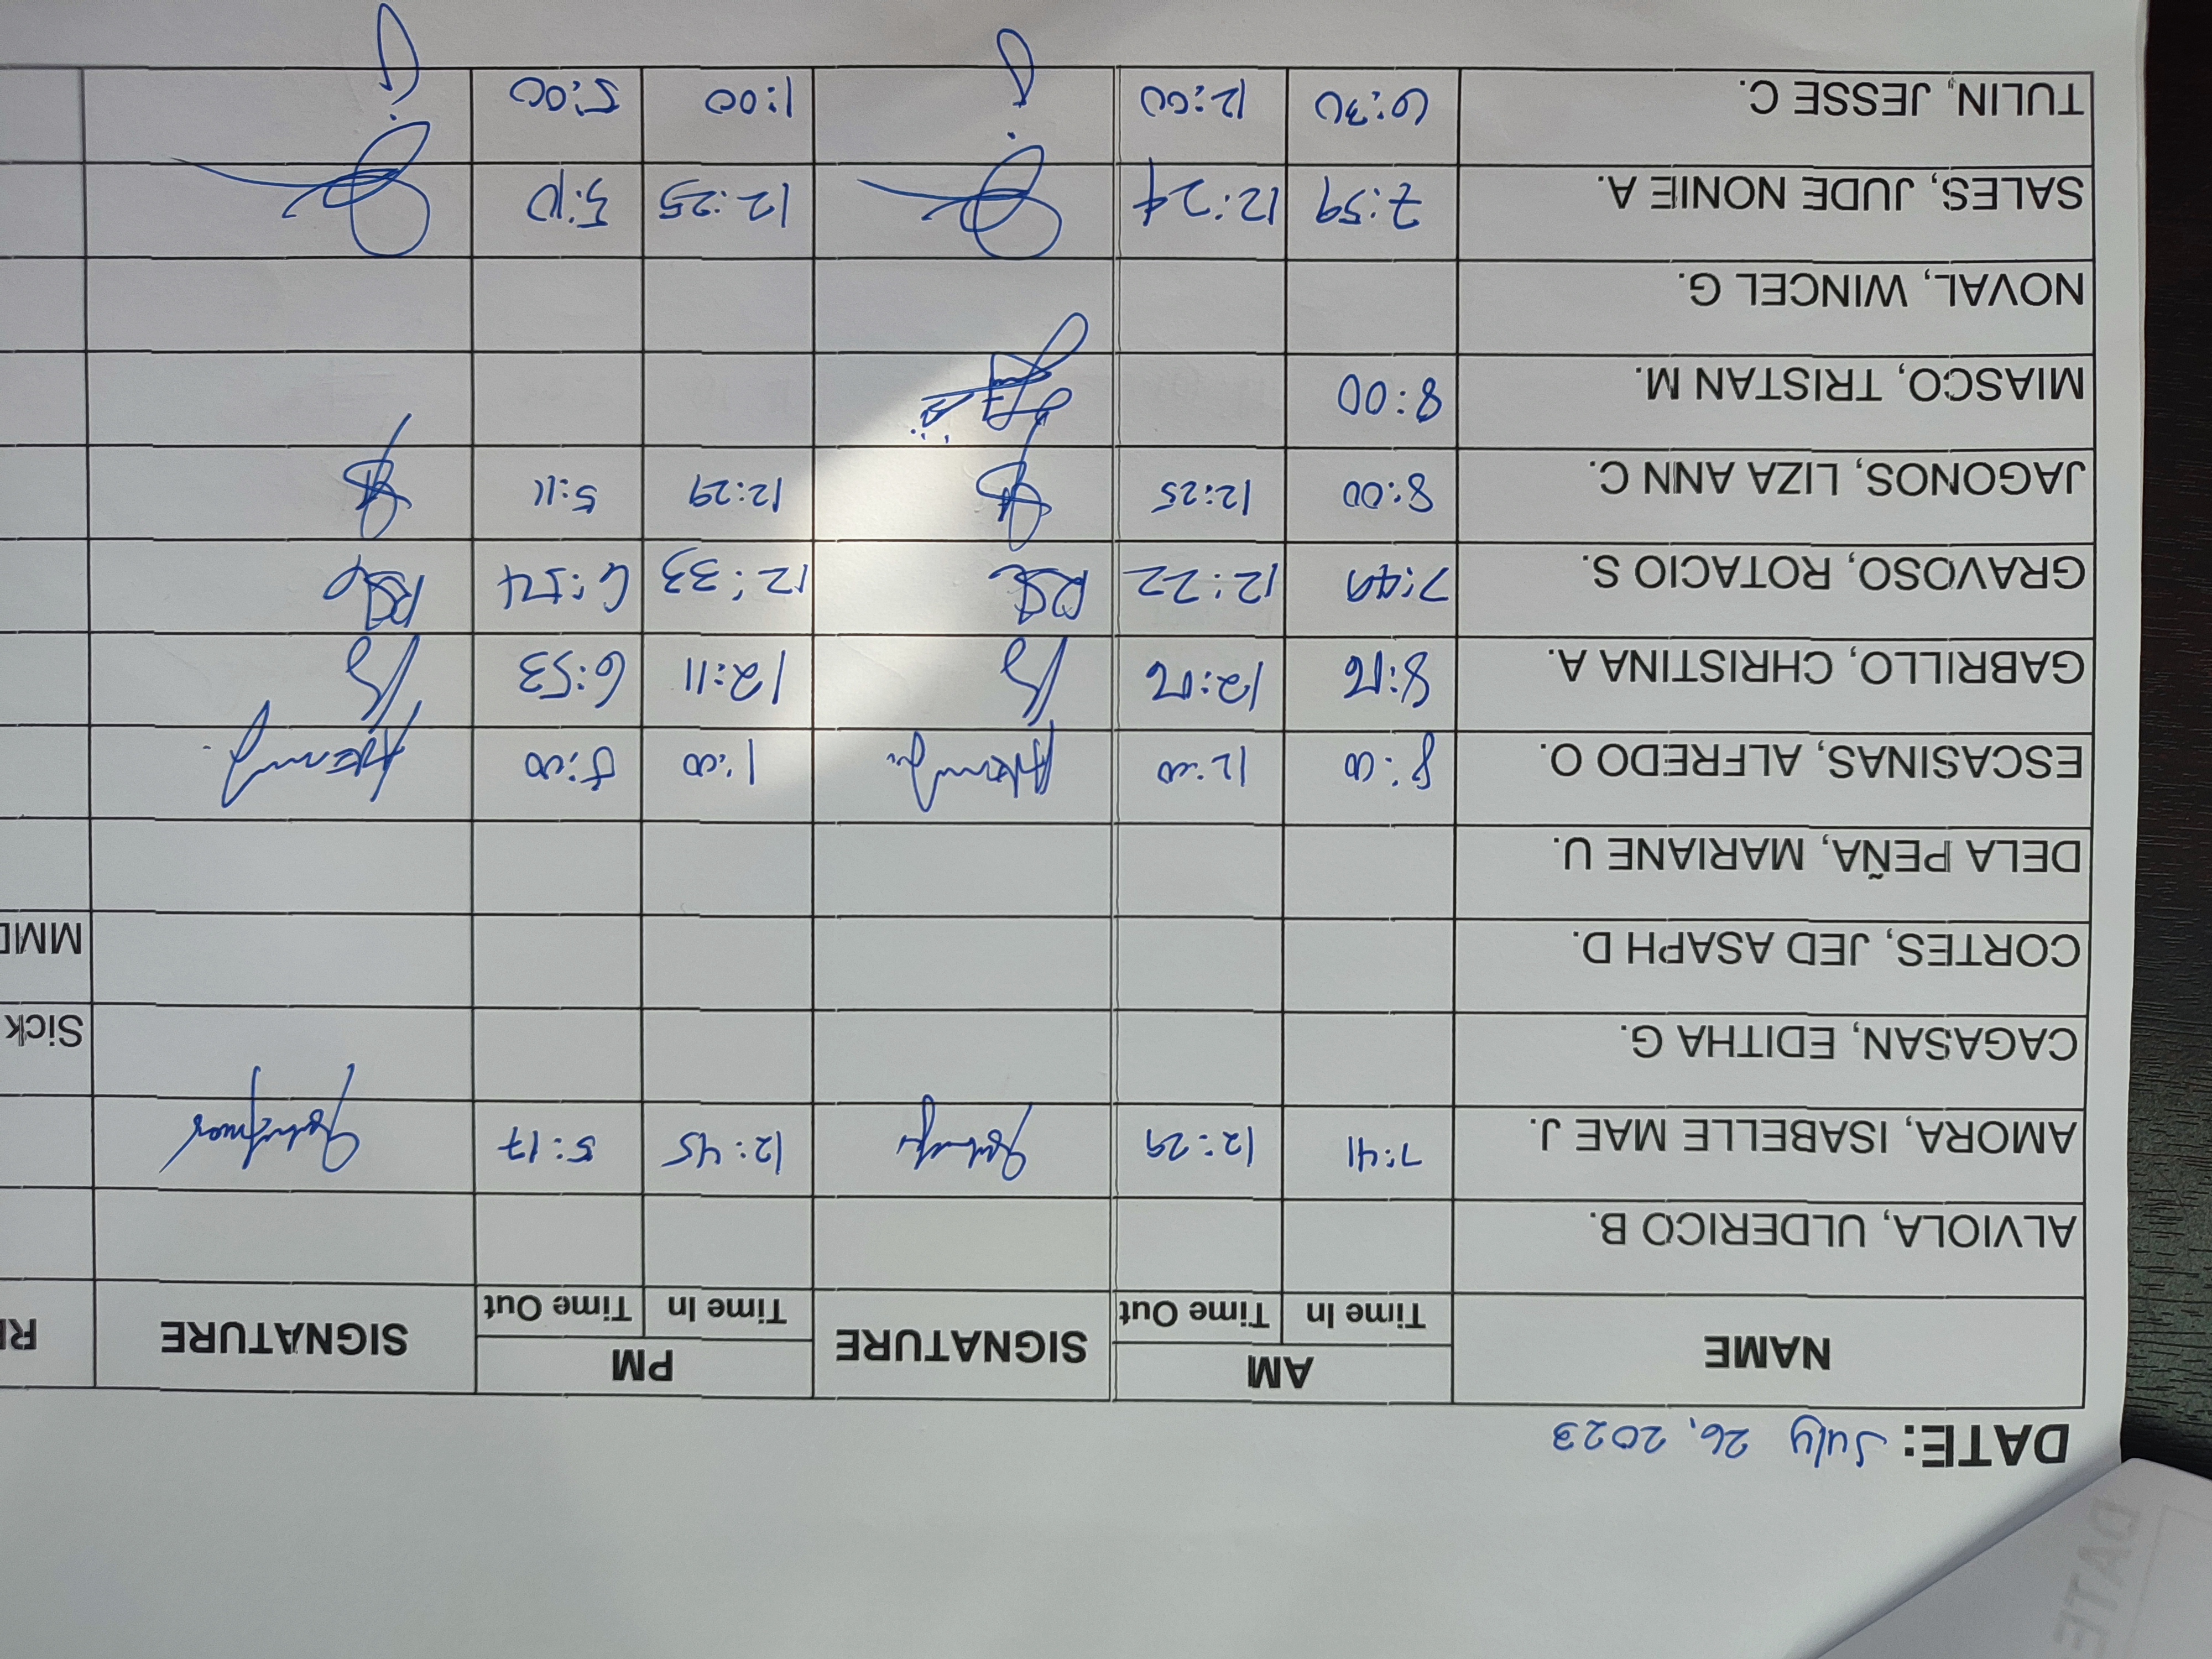 DATE: July 26, 2023
NAME AM SIGNATURE PM SIGNATURE
Time In Time Out Time In Time Out
ALVIOLA, ULDERICO B.
AMORA, ISABELLE MAE J. 7:41 12:29 12:45 5:17
CAGASAN, EDITHA G. Sick
CORTES, JED ASAPH D.
DELA PEÑA, MARIANE U.
ESCASINAS, ALFREDO O. 8:00 12:00 1:00 5:00
GABRILLO, CHRISTINA A. 8:06 12:06 12:11 6:53
GRAVOSO, ROTACIO S. 7:49 12:22 12:33 6:54
JAGONOS, LIZA ANN C. 8:00 12:25 12:29 5:11
MIASCO, TRISTAN M. 8:00
NOVAL, WINCEL G.
SALES, JUDE NONIE A. 7:59 12:24 12:25 5:10
TULIN, JESSE C. 6:30 12:00 1:00 5:00
DATE